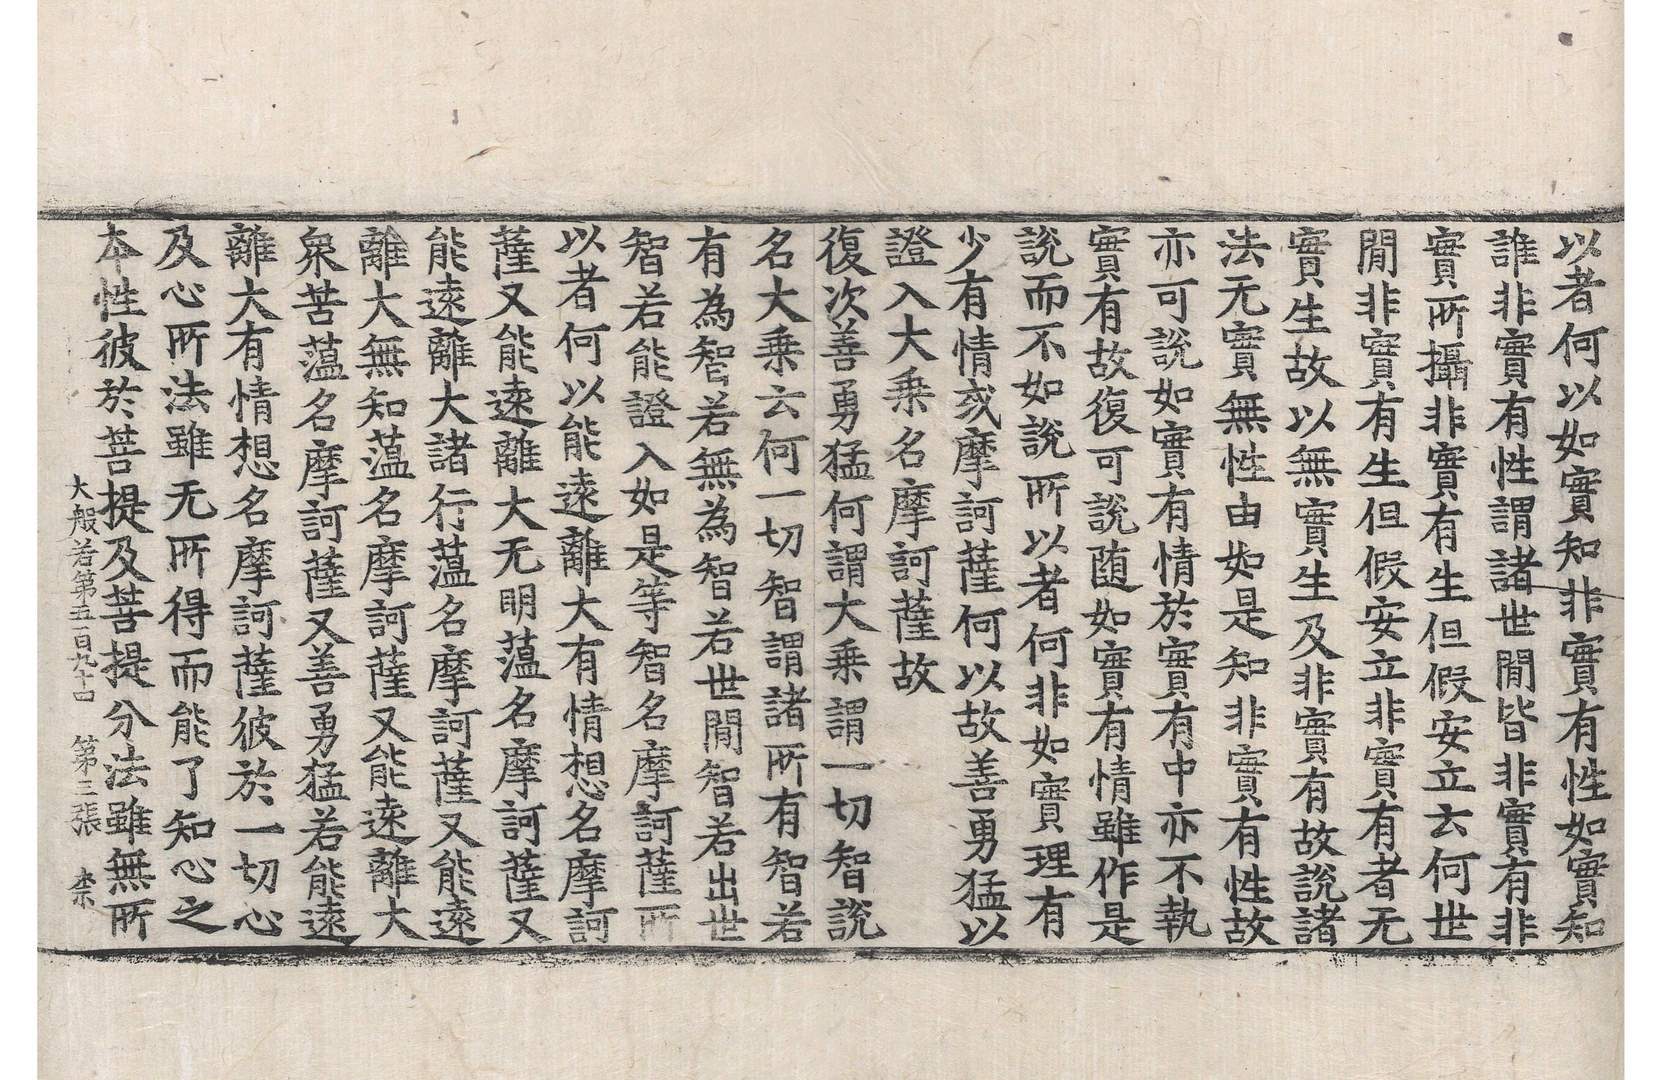 以者何以如實知非實有性如實知
誰非實有性謂諸世閒皆非實有非
實所攝非實有生但假安立云何世
閒非實有生但假安立非實有者无
實生故以無實生及非實有故說諸
法无實無性由如是知非實有性故
亦可說如實有情於實有中亦不執
實有故復可說随如實有情雖作是
說而不如說所以者何非如實理有
少有情或摩訶薩何以故善勇猛以
證入大乗名摩訶薩故
復次善勇猛何謂大乗謂一切智說
名大乗云何一切智謂諸所有智若
有為智若無為智若世閒智若出世
智若能證入如是等智名摩訶薩所
以者何以能遠離大有情想名摩訶
薩又能遠離大无明蕰名摩訶薩又
能遠離大諸行蕰名摩訶薩又能遠
離大無知蕰名摩訶薩又能遠離大
衆苦蕰名摩訶薩又善勇猛若能遠
離大有情想名摩訶薩彼於一切心
及心所法雖无所得而能了知心之
本性彼於菩提及菩提分法雖無所
大般若第五百九十四 第三張 柰